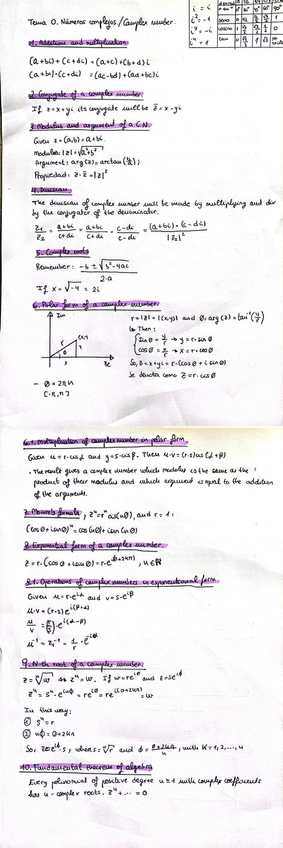 Tema 0. Números complejos / Complex number.
i = i
i² = -1
i³ = -i
i⁴ = 1
0° 30° 45° 60° 90°
seno
cos
tan
1. Additions and multiplication
(a+bi) + (c+di) = (a+c) + (b+d)i
(a+bi)·(c+di) = (ac-bd) + (ad+bc)i
2. Conjugate of a complex number
If z = x+yi its conjugate will be z̄ = x-yi
3. Modulus and argument of a C.N.
Given z = (a,b) = a+bi.
Modulus: |z| = √a²+b²
Argument: arg(z) = arctan(b/a);
Propiedad: z·z̄ = |z|²
4. Division
The division of complex number will be made by multiplying and div
by the conjugator of the denominator.
z₁/z₂ = a+bi/c+di = a+bi/c+di · c-di/c-di = (a+bi)·(c-di)/|z₂|²
5. Complex roots
Remember: -b ± √b²-4ac / 2·a
If x = √-4 = 2i
6. Polar form of a complex number
Im
(x,y)
r
y
θ
x
Re
r = |z| = |(x,y)| and θ = arg(z) = tan⁻¹(y/x)
↳ Then:
sin θ = y/r → y = r·sin θ
cos θ = x/r → x = r·cos θ
So, z = x+yi = r·(cos θ + i sin θ)
Se denota como z = r·cis θ
- θ + 2kπ
[-π, π]
6.1. Multiplication of complex number in polar form
Given u = r·cis α and v = s·cis β. Then u·v = (r·s) cis (α+β)
· The result gives a complex number which modulus is the same as the
product of their modulus and which argument is equal to the addition
of the arguments.
7. Moivre's formula, zⁿ = rⁿ cis(nθ), and r = 1:
(cos θ + i sin θ)ⁿ = cos(nθ) + i sin(nθ)
8. Exponential form of a complex number
z = r·(cos θ + i sin θ) = r·e^i(θ+2kπ), k ∈
8.1. Operations of complex numbers in exponentional form
Given u = r·e^iα and v = s·e^iβ
u·v = (r·s)·e^i(α+β)
u/v = (r/s)·e^i(α-β)
u⁻¹ = z⁻¹ = 1/r · e^-iα
9. N-th root of a complex number.
z = ⁿ√w ⇔ zⁿ = w. If w = re^iθ and z = se^iϕ
zⁿ = sⁿ·e^inϕ = re^iθ = re^i(θ+2kπ) = w
In this way:
① sⁿ = r
② nϕ = θ + 2kπ
So, z = e^iϕ·s, when s = ⁿ√r and ϕ = θ+2kπ/n, with k = 1, 2, ..., n
10. Fundamental theorem of algebra
Every polinomial of positive degree n ≥ 1 with complex coefficients
has n - complex roots. zⁿ + ... = 0